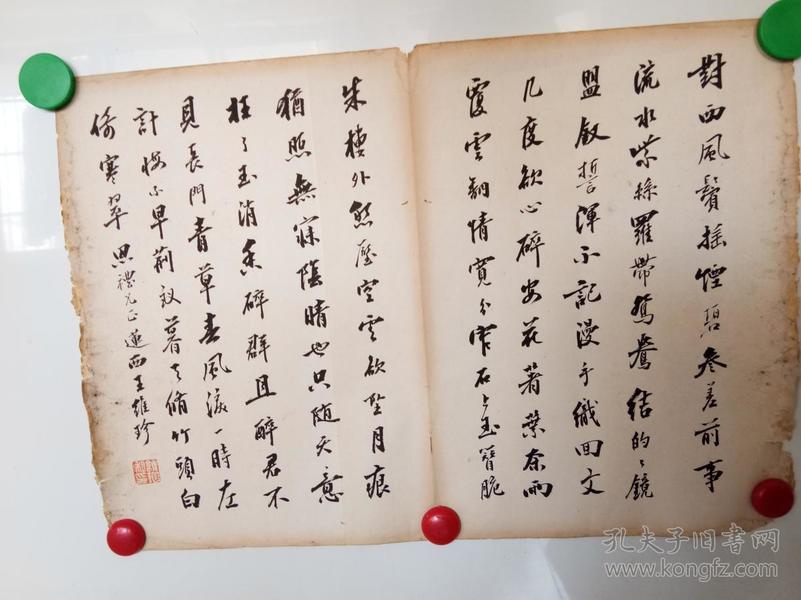 對西風鬢搖煙碧參差前事
流水紫絲羅帶鴛鴦結的〻鏡
盟釵誓渾不記漫手織回文
几度欲心碎安花著葉奈雨
覆雲翻情寬分窄石上玉簪脆
朱樓外愁壓空雲欲墜月痕
猶照無寐陰晴也只随天意
枉了玉消香碎群且醉君不
見長門青草春風淚一時左
計悔不早荊釵暮天脩竹頭白
倚寒翠 思禮兄正 蓮西王維珍
孔夫子旧书网
www.kongfz.com